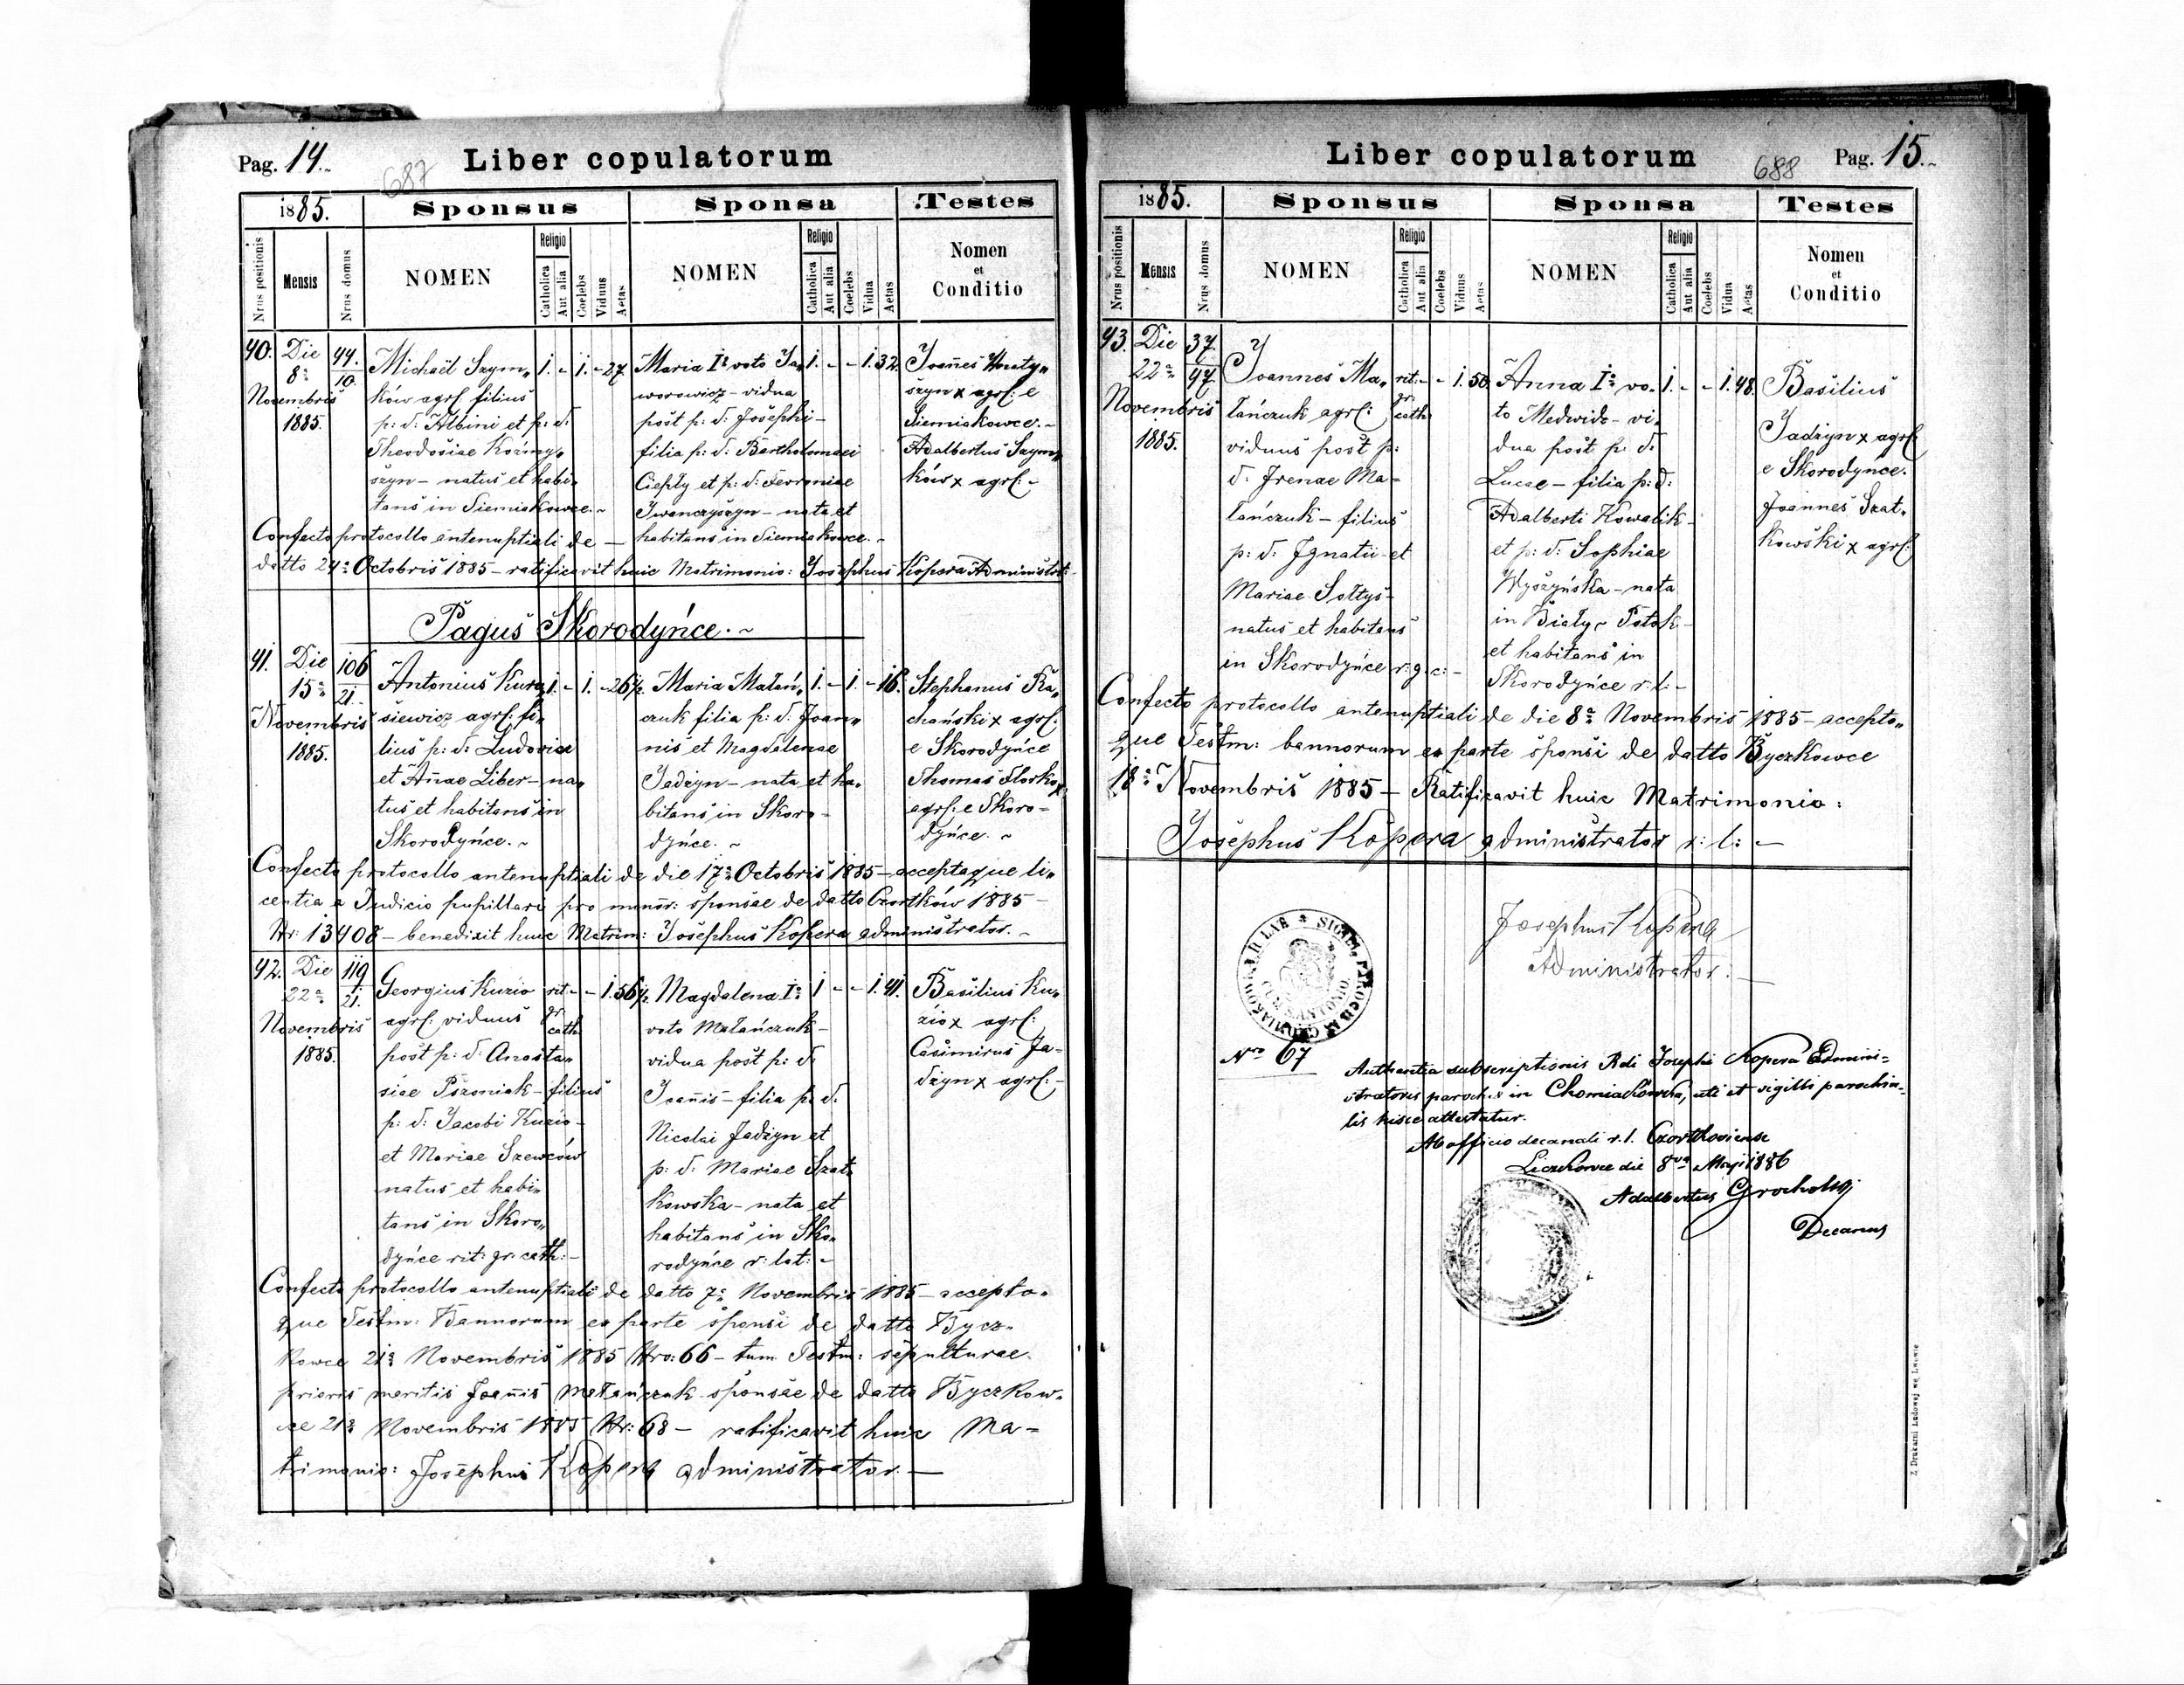 Pag. 14.
687
Liber copulatorum
1885.
Sponsus
Sponsa
Testes
Nrus positionis
Mensis
Nrus domus
NOMEN
Religio
Catholica
Aut alia
Coelebs
Viduus
Aetas
NOMEN
Religio
Catholica
Aut alia
Coelebs
Vidua
Aetas
Nomen
et
Conditio
40.
Die
8a
Novembris
1885.
44.
10.
Michaël Szym„
ków agrl. filius
p: d: Albini et p: d:
Theodosiae Koźmy„
szyn – natus et habi„
tans in Siemiakowce. ~
1. - 1. - 27.
Maria Io voto Ja„
worowicz – vidua
post p: d: Josephi –
filia p: d: Bartholomaei
Ciepły et p: d: Fevroniae
Iwanczyszyn – nata et
habitans in Siemiakowce. ~
1. - - 1. 32.
Joannes Hnaty„
szyn x agrl: e
Siemiakowce. ~
Adalbertus Szym„
ków x agrl: ~
Confecto protocollo antenuptiali de –
datto 24a Octobris 1885 – ratificavit huic Matrimonio: Josephus Kopera Administrat:
Pagus Skorodyńce. ~
41.
Die
15a
Novembris
1885.
106
21.
Antonius Kura„
siewicz agrl: fi„
lius p: d: Ludovici
et Annae Liber – na„
tus et habitans in
Skorodyńce. ~
1. - 1. - 26½.
Maria Małań„
czuk filia p: d: Joan„
nis et Magdalenae
Jadzyn – nata et ha„
bitans in Skoro –
dyńce. ~
1. - 1. - 16.
Stephanus Ra„
chański x agrl:
e Skorodyńce
Thomas Florko x
agrl: e Skoro –
dyńce. ~
Confecto protocollo antenuptiali de die 17a Octobris 1885 – acceptaque li„
centia a Judicio pupillari pro minor: sponsae de datto Czortków 1885 –
Nr: 13408 – benedixit huic Matrim: Josephus Kopera administrator. ~
42.
Die
22a
Novembris
1885.
119
21.
Georgius Kuzio
agrl: viduus
post p: d: Anasta„
siae Pszoniak – filius
p: d: Jacobi Kuzio –
et Mariae Szewców
natus et habi„
tans in Skoro„
dyńce rit: gr: cath: –
rit. - - 1. 56½.
gr:
cath
Magdalena Io
voto Małańczuk –
vidua post p: d:
Joannis – filia p: d.
Nicolai Jadzyn et
p: d: Mariae Szat„
kowska – nata et
habitans in Sko„
rodyńce r: lat: ~
1 - - 1. 41.
Basilius Ku„
zio x agrl:
Casimirus Ja –
dzyn x agrl: –
Confecto protocollo antenuptiali de datto 7a Novembris 1885 – accepto„
que Testm: Bannorum ex parte sponsi de datto Bycz„
kowce 21a Novembris 1885 Nro: 66 – tum Testm: sepulturae
prioris mariti Joannis Małańczuk sponsae de datto Byczkow„
ce 21a Novembris 1885 Nr: 68 – ratificavit huic Ma –
trimonio: Josephus Kopera administrator. –
Liber copulatorum
688
Pag. 15. ~
1885.
Sponsus
Sponsa
Testes
Nrus positionis
Mensis
Nrus domus
NOMEN
Religio
Catholica
Aut alia
Coelebs
Viduus
Aetas
NOMEN
Religio
Catholica
Aut alia
Coelebs
Vidua
Aetas
Nomen
et
Conditio
43.
Die
22a
Novembris
1885.
37.
47.
Joannes Ma„
łańczuk agrl:
viduus post p:
d: Irenae Ma –
łańczuk – filius
p: d: Ignatii et
Mariae Sołtys –
natus et habitans
in Skorodyńce r: g: c: –
rit: - - 1. 50.
gr:
cath
Anna Io vo„
to Medwidz – vi„
dua post p: d:
Lucae – filia p: d:
Adalberti Kowalik –
et p: d: Sophiae
Wyszyńska – nata
in Biały Potok –
et habitans in
Skorodyńce r: l: –
1. - - 1. 48.
Basilius
Jadzyn x agrl
e Skorodyńce.
Joannes Szat„
kowski x agrl:
Confecto protocollo antenuptiali de die 8a Novembris 1885 – accepto„
que Testm: bannorum ex parte sponsi de datto Byczkowce
18a Novembris 1885 – Ratificavit huic Matrimonio:
Josephus Kopera administrator r: l: –
Josephus Kopera
Administrator. –
Nro 67
Authentia subscriptionis Rdi Josephi Kopera Admini=
stratoris paroch. in Chomiakówka, uti et sigilli parochia=
lis hisce attestatur.
Ab officio decanali r. l. Czortkoviensi
die 8va Maji 1886
Adalbertus
Decanus
Z Drukarni Ludowej we Lwowie